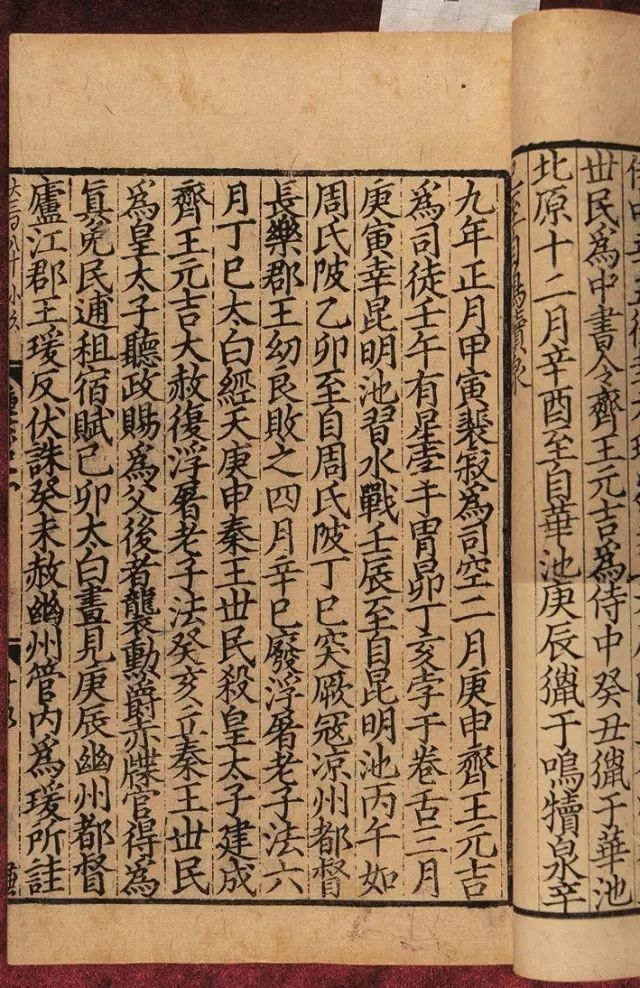 世民為中書令齊王元吉為侍中癸丑獵于華池
北原十二月辛酉至自華池庚辰獵于鳴犢泉辛
巳至自鳴犢泉
九年正月甲寅裴寂為司空二月庚申齊王元吉
為司徒壬午有星孛于胃昴丁亥孛于卷舌三月
庚寅幸昆明池習水戰壬辰至自昆明池丙午如
周氏陂乙卯至自周氏陂丁巳突厥寇凉州都督
長樂郡王幼良敗之四月辛巳廢浮屠老子法六
月丁巳太白經天庚申秦王世民殺皇太子建成
齊王元吉大赦復浮屠老子法癸亥立秦王世民
為皇太子聽政賜為父後者襲勳爵赤牒官得為
真免民逋租宿賦己卯太白晝見庚辰幽州都督
廬江郡王瑗反伏誅癸未赦幽州管内為瑗所詿
大三百八十小